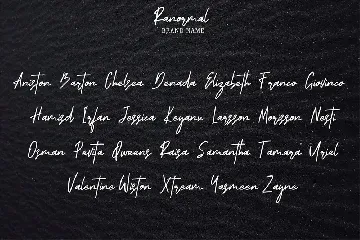 Ranormal
BRAND NAME
Aniston Barton Chelsea Denada Elizabeth Franco Giovinco
Hamizd Irfan Jessica Keyanu Larsson Morisson Nesti
Osman Pavita Qweens Raisa Samantha Tamara Uriel
Valentine Wiston Xtream Yasmeen Zayne